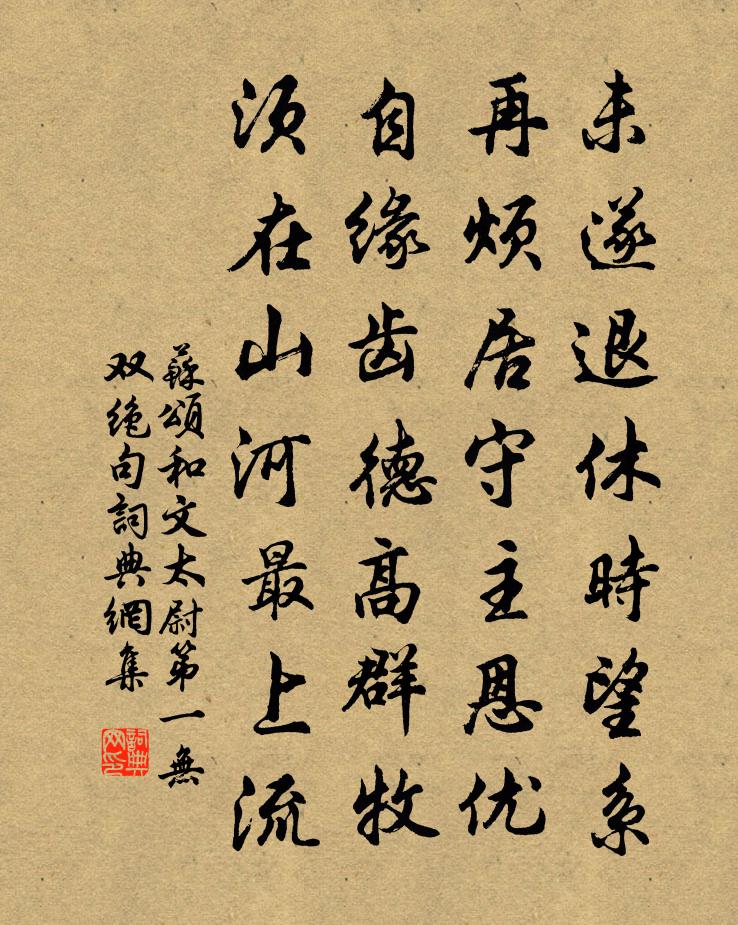 未遂退休時望系
再烦居守主恩优
自缘齿德高群牧
须在山河最上流
蘇頌和文太尉第一無
双绝句詞典網集
詞典
网印